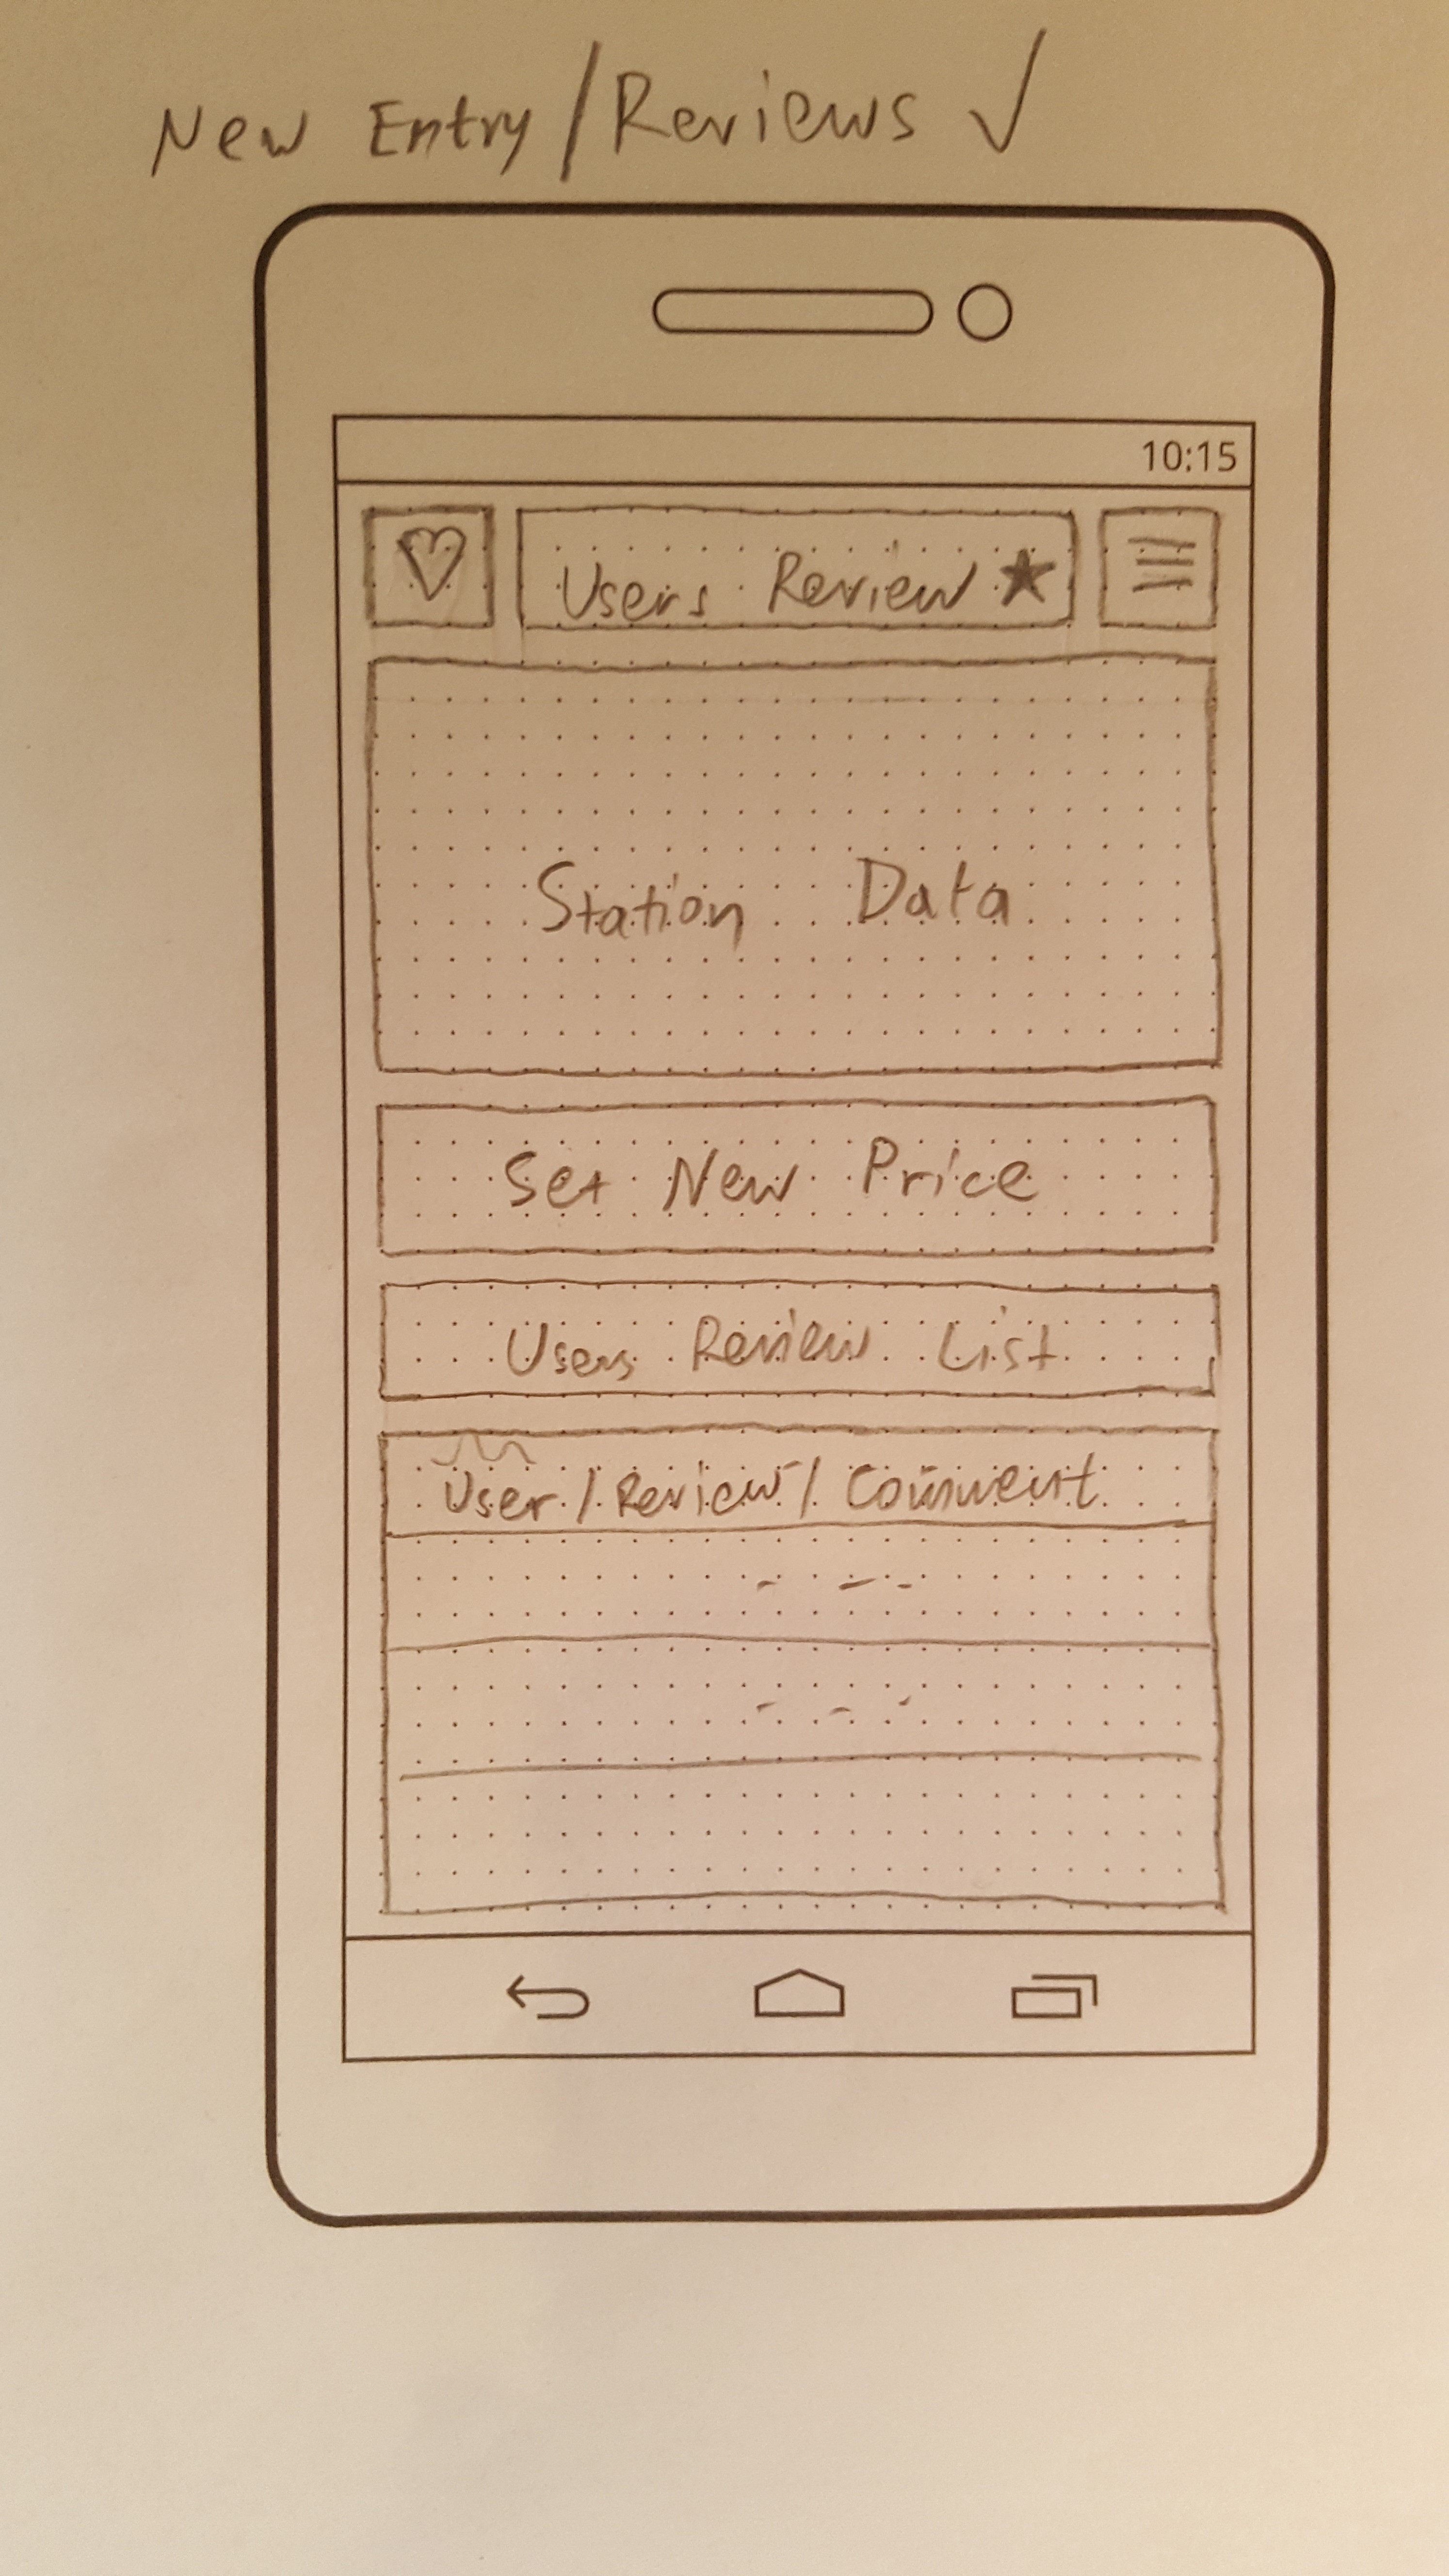 New Entry/Reviews ✓
10:15
Users Review ★
Station Data
Set New Price
Users Review List
User/Review/Comment